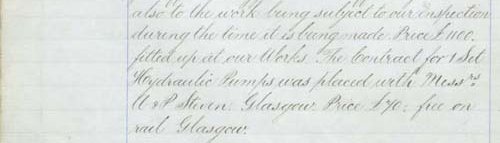 also to the work being subject to our inspection
during the time it is being made. Price £1100.
fitted up at our Works. The Contract for 1 Set
Hydraulic Pumps was placed with Messrs.
A & P Steven. Glasgow. Price £70; free on
rail Glasgow.